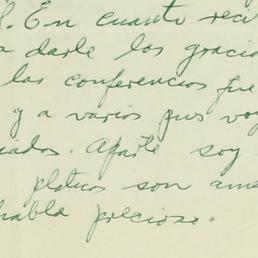 l. En cuanto reci
a darle las gracia
las conferencias fue
y a varios pus voy
iados. Aparte soy
platicas son ame
habla precioso.